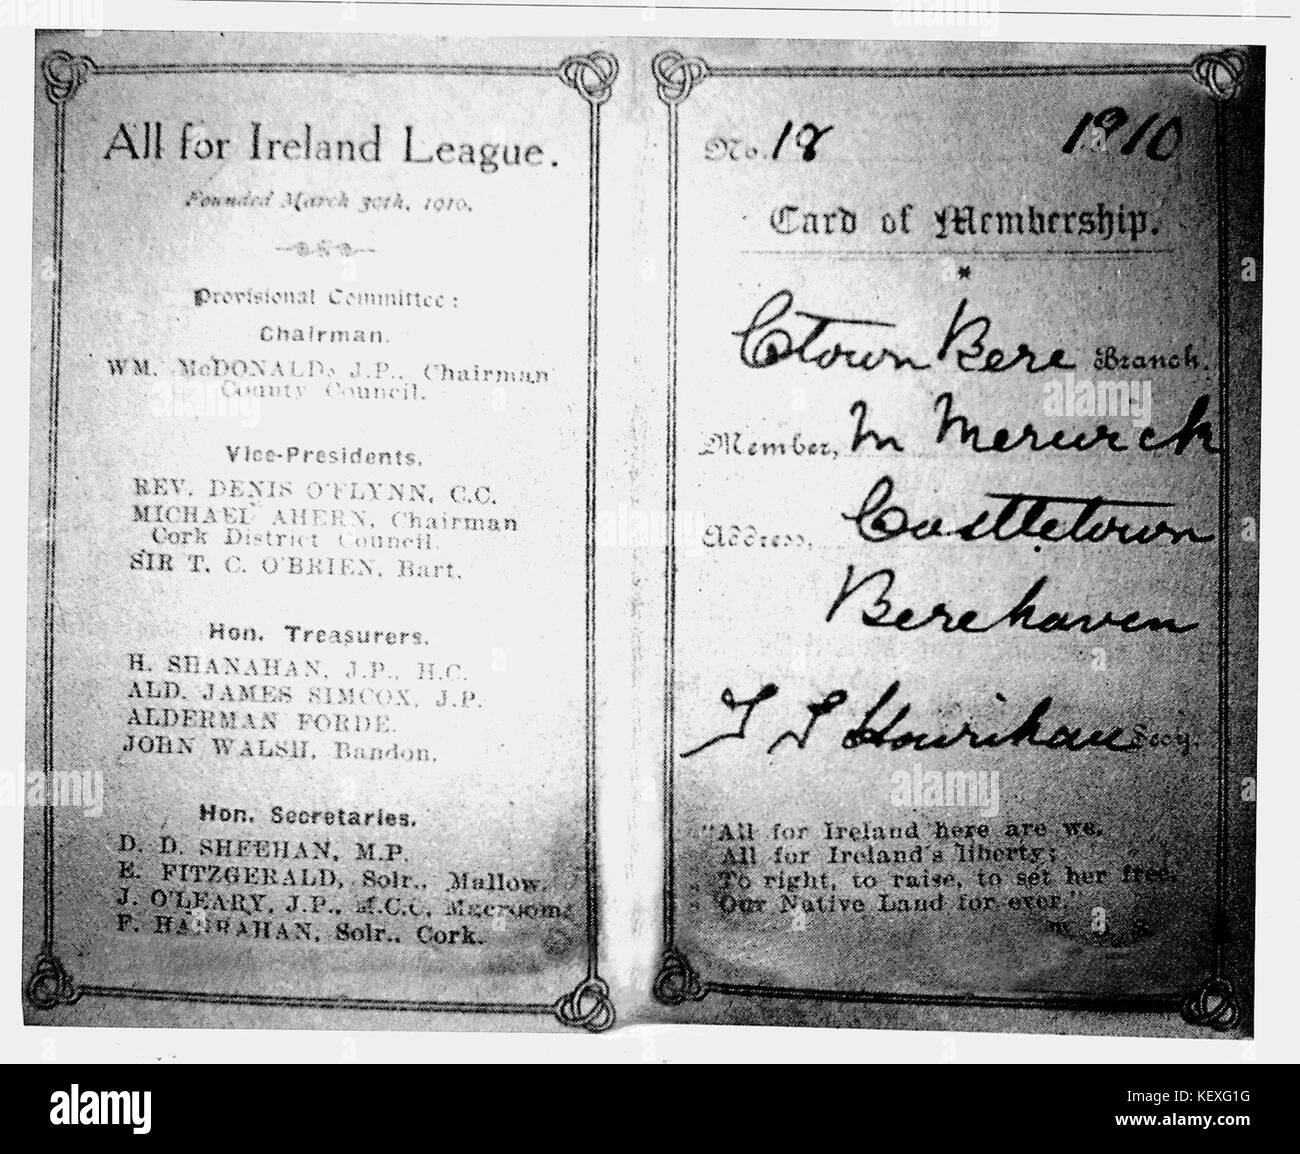 All for Ireland League.
Founded March 30th, 1910.
Provisional Committee:
Chairman.
WM. McDONALD, J.P., Chairman
County Council.
Vice-Presidents.
REV. DENIS O'FLYNN, C.C.
MICHAEL AHERN, Chairman
Cork District Council.
SIR T. C. O'BRIEN, Bart.
Hon. Treasurers.
H. SHANAHAN, J.P., H.C.
ALD. JAMES SIMCOX, J.P.
ALDERMAN FORDE.
JOHN WALSH, Bandon.
Hon. Secretaries.
D. D. SHEEHAN, M.P.
E. FITZGERALD, Solr., Mallow.
J. O'LEARY, J.P., M.C.C, Macroom;
F. HANRAHAN, Solr., Cork.
No. 18 1910
Card of Membership.
*
Ctown Bere Branch.
Member, M Merwick
Address, Castletown
Berehaven
Secy.
"All for Ireland here are we.
All for Ireland's liberty;
To right, to raise, to set her free,
Our Native Land for ever."
alamy
Image ID: KEXG1G
www.alamy.com